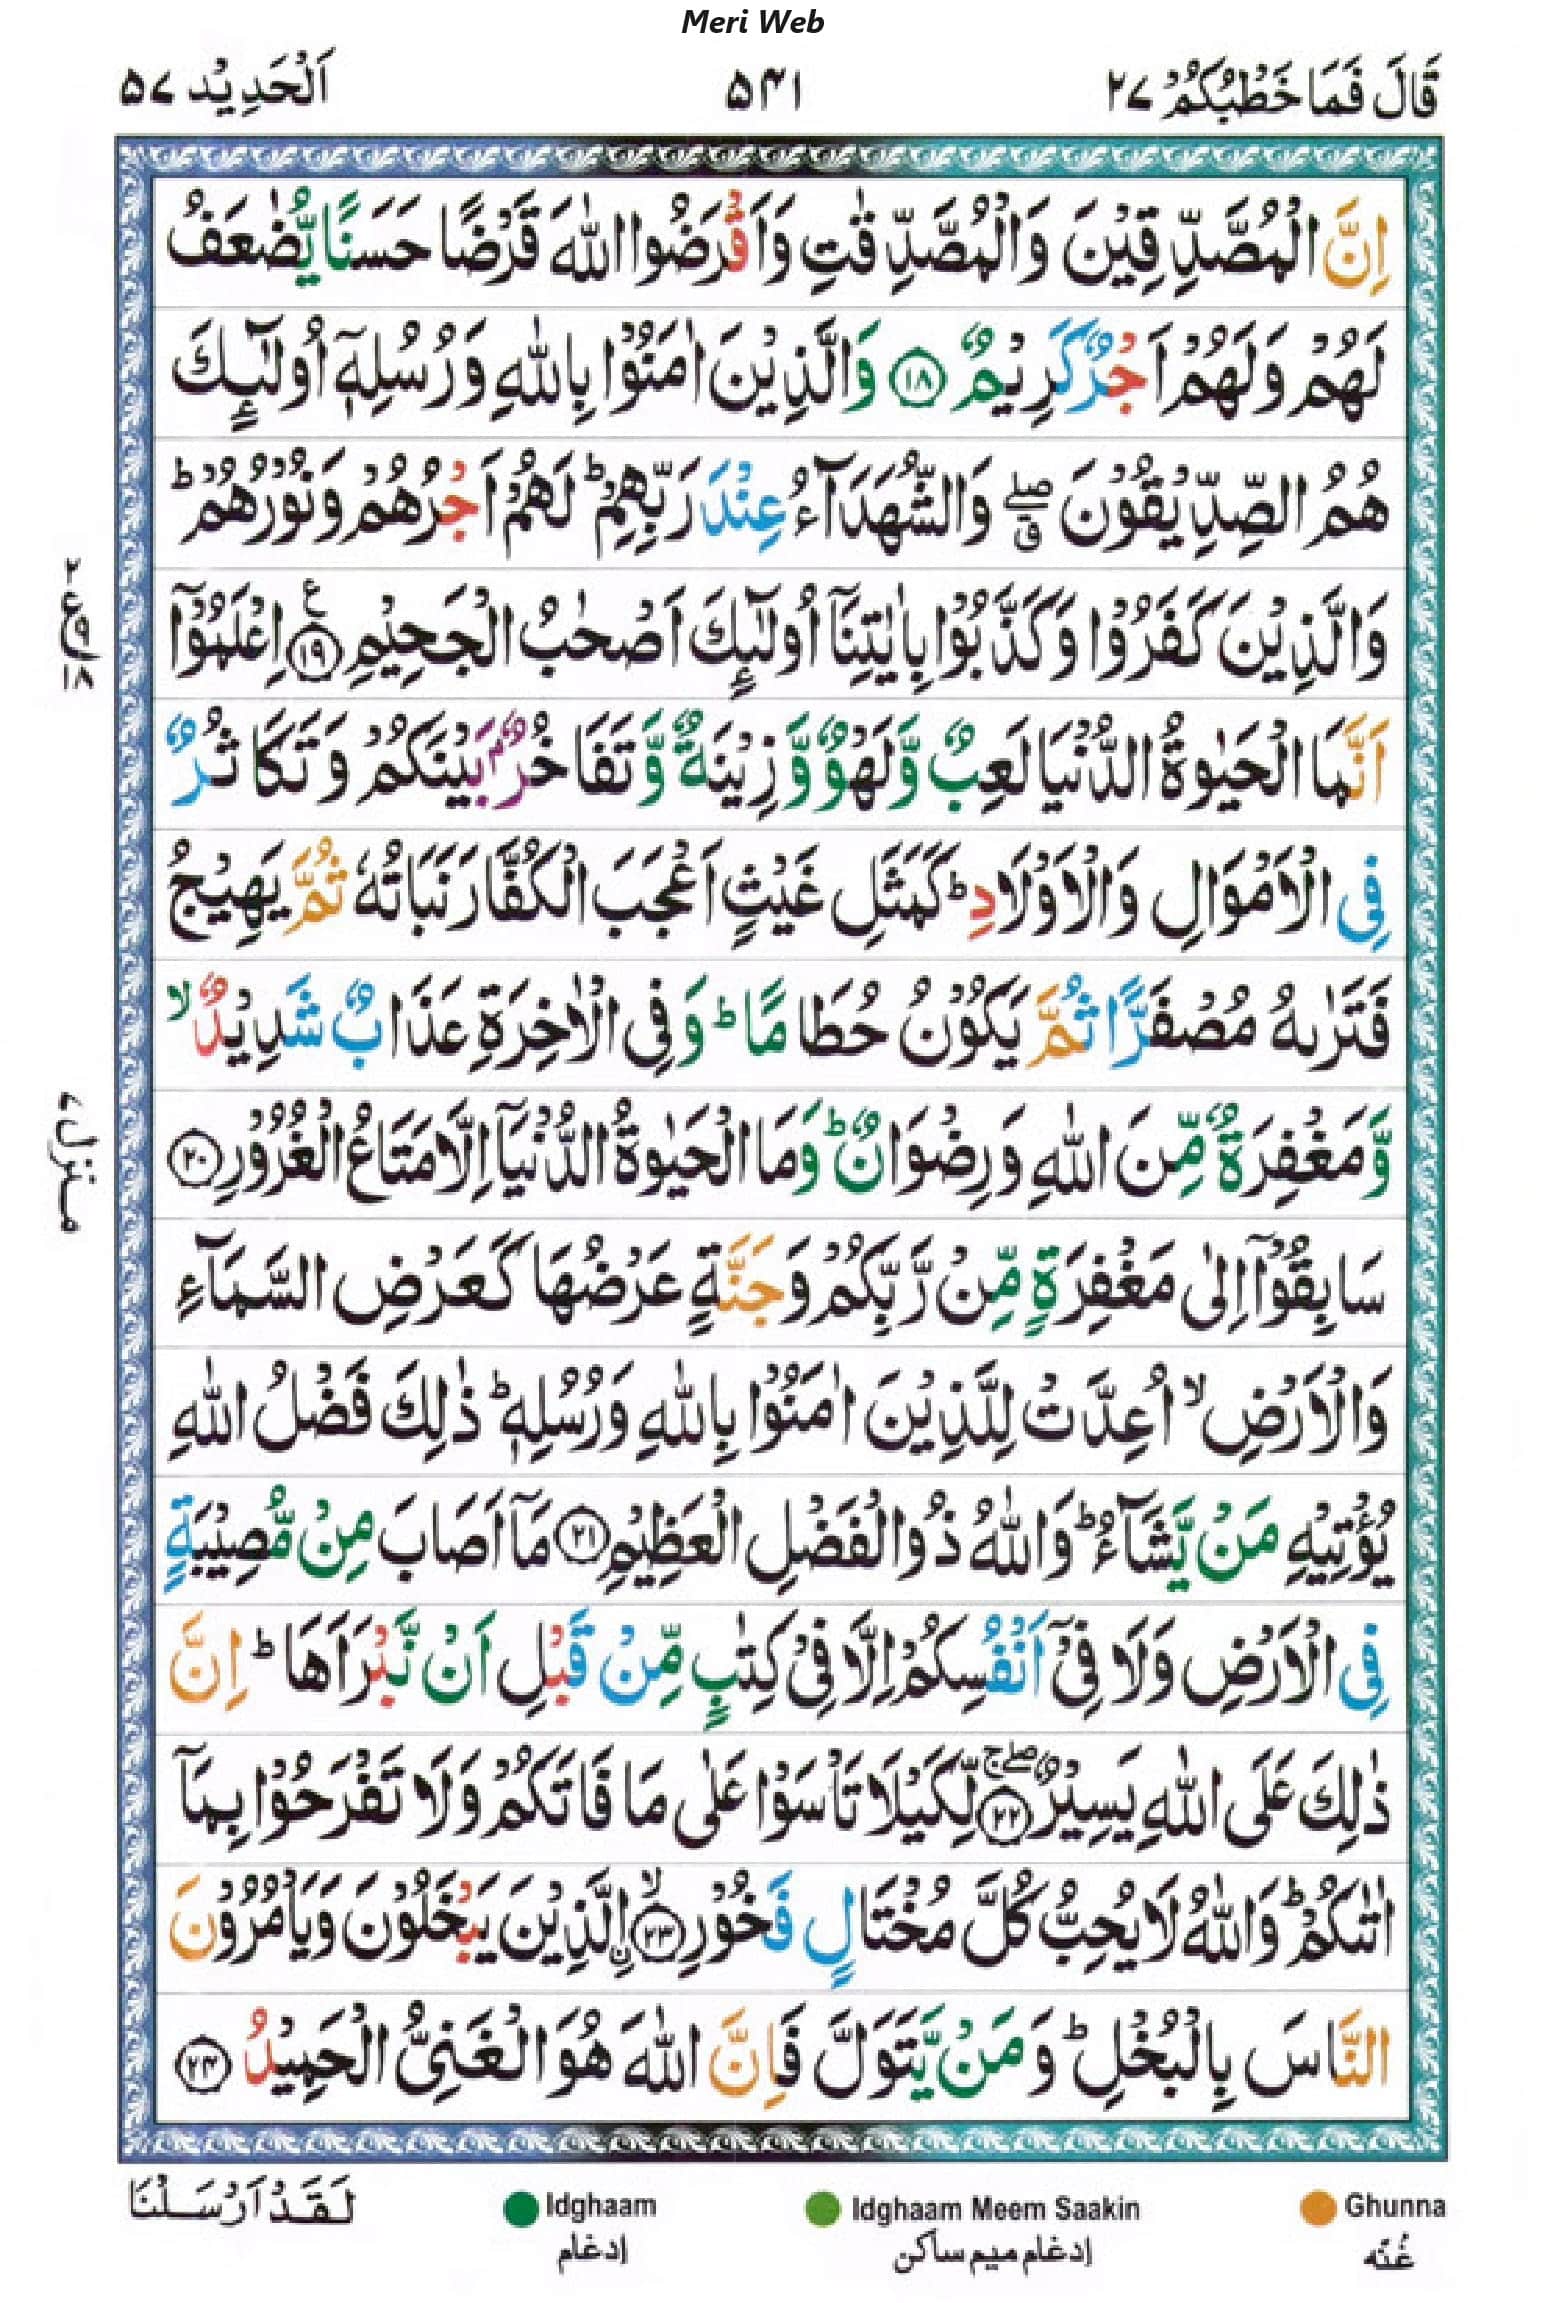 Meri Web
قَالَ فَمَا خَطْبُكُمْ ۲۷
۵۴۱
اَلْحَدِیْد ۵۷
اِنَّ الْمُصَّدِّقِیْنَ وَالْمُصَّدِّقٰتِ وَاَقْرَضُوا اللّٰهَ قَرْضًا حَسَنًا یُّضٰعَفُ
لَهُمْ وَلَهُمْ اَجْرٌ كَرِیْمٌ ﴿۱۸﴾ وَالَّذِیْنَ اٰمَنُوْا بِاللّٰهِ وَرُسُلِهٖۤ اُولٰٓىِٕكَ
هُمُ الصِّدِّیْقُوْنَ ۖۗ وَالشُّهَدَآءُ عِنْدَ رَبِّهِمْ ؕ لَهُمْ اَجْرُهُمْ وَنُوْرُهُمْ ؕ
وَالَّذِیْنَ كَفَرُوْا وَكَذَّبُوْا بِاٰیٰتِنَاۤ اُولٰٓىِٕكَ اَصْحٰبُ الْجَحِیْمِ ﴿۱۹﴾ ع اِعْلَمُوْۤا
اَنَّمَا الْحَیٰوةُ الدُّنْیَا لَعِبٌ وَّلَهْوٌ وَّزِیْنَةٌ وَّتَفَاخُرٌۢ بَیْنَكُمْ وَتَكَاثُرٌ
فِی الْاَمْوَالِ وَالْاَوْلَادِ ؕ كَمَثَلِ غَیْثٍ اَعْجَبَ الْكُفَّارَ نَبَاتُهٗ ثُمَّ یَهِیْجُ
فَتَرٰىهُ مُصْفَرًّا ثُمَّ یَكُوْنُ حُطَامًا ؕ وَفِی الْاٰخِرَةِ عَذَابٌ شَدِیْدٌ ۙ
وَّمَغْفِرَةٌ مِّنَ اللّٰهِ وَرِضْوَانٌ ؕ وَمَا الْحَیٰوةُ الدُّنْیَاۤ اِلَّا مَتَاعُ الْغُرُوْرِ ﴿۲۰﴾
سَابِقُوْۤا اِلٰی مَغْفِرَةٍ مِّنْ رَّبِّكُمْ وَجَنَّةٍ عَرْضُهَا كَعَرْضِ السَّمَآءِ
وَالْاَرْضِ ۙ اُعِدَّتْ لِلَّذِیْنَ اٰمَنُوْا بِاللّٰهِ وَرُسُلِهٖ ؕ ذٰلِكَ فَضْلُ اللّٰهِ
یُؤْتِیْهِ مَنْ یَّشَآءُ ؕ وَاللّٰهُ ذُوالْفَضْلِ الْعَظِیْمِ ﴿۲۱﴾ مَاۤ اَصَابَ مِنْ مُّصِیْبَةٍ
فِی الْاَرْضِ وَلَا فِیْۤ اَنْفُسِكُمْ اِلَّا فِیْ كِتٰبٍ مِّنْ قَبْلِ اَنْ نَّبْرَاَهَا ؕ اِنَّ
ذٰلِكَ عَلَی اللّٰهِ یَسِیْرٌ ﴿۲۲﴾ ۖۚ لِّكَیْلَا تَاْسَوْا عَلٰی مَا فَاتَكُمْ وَلَا تَفْرَحُوْا بِمَاۤ
اٰتٰىكُمْ ؕ وَاللّٰهُ لَا یُحِبُّ كُلَّ مُخْتَالٍ فَخُوْرِ ﴿۲۳﴾ ۙ اِ۟لَّذِیْنَ یَبْخَلُوْنَ وَیَاْمُرُوْنَ
النَّاسَ بِالْبُخْلِ ؕ وَمَنْ یَّتَوَلَّ فَاِنَّ اللّٰهَ هُوَ الْغَنِیُّ الْحَمِیْدُ ﴿۲۴﴾
منزل ۷
Ghunna
غُنّه
Idghaam Meem Saakin
إدغام میم ساکن
Idghaam
إدغام
لَقَدْ اَرْسَلْنَا